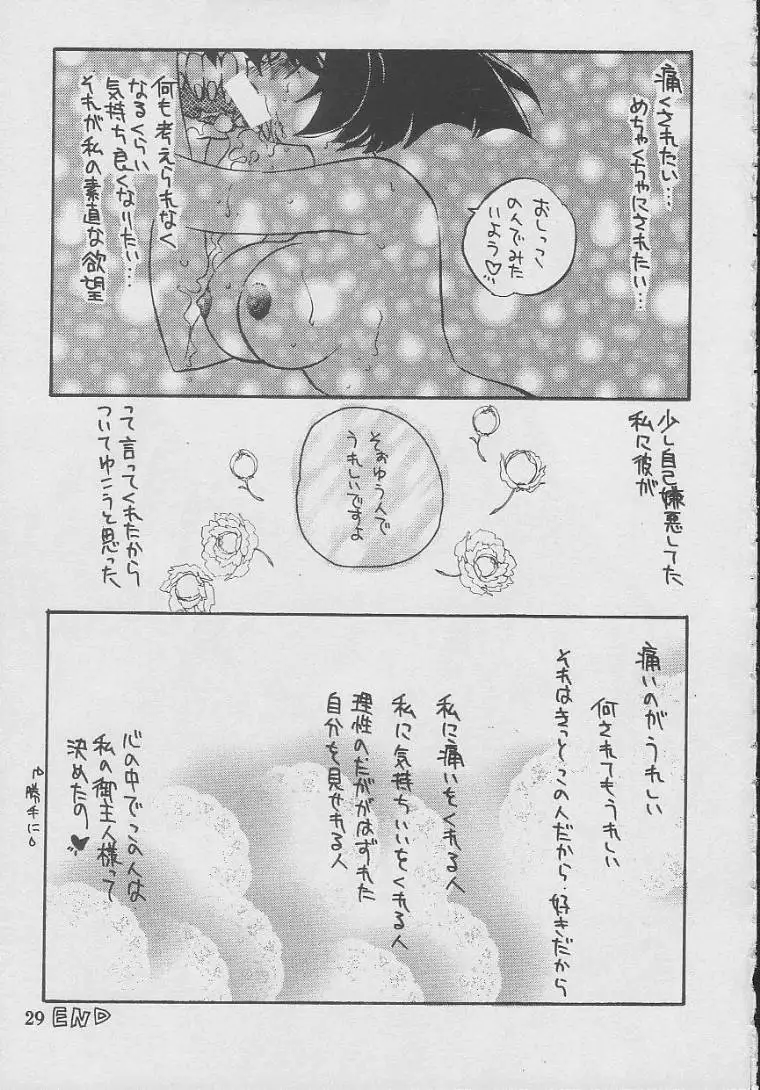 痛くされたい…
めちゃくちゃにされたい…
おしっこ
のんでみた
いよう♡…
何も考えられなく
なるくらい
気持ち良くなりたい…
それが私の素直な欲望
少し自己嫌悪してた
私に彼が
そぉゆう人で
うれしいですよ
って言ってくれたから
ついてゆこうと思った
痛いのがうれしい
何されてもうれしい
それはきっとこの人だから・好きだから
私に痛いをくれる人
私に気持ちいいをくれる人
理性のたががはずれた
自分を見せれる人
心の中でこの人は
私の御主人様って
決めたの♥
勝手に
29 END